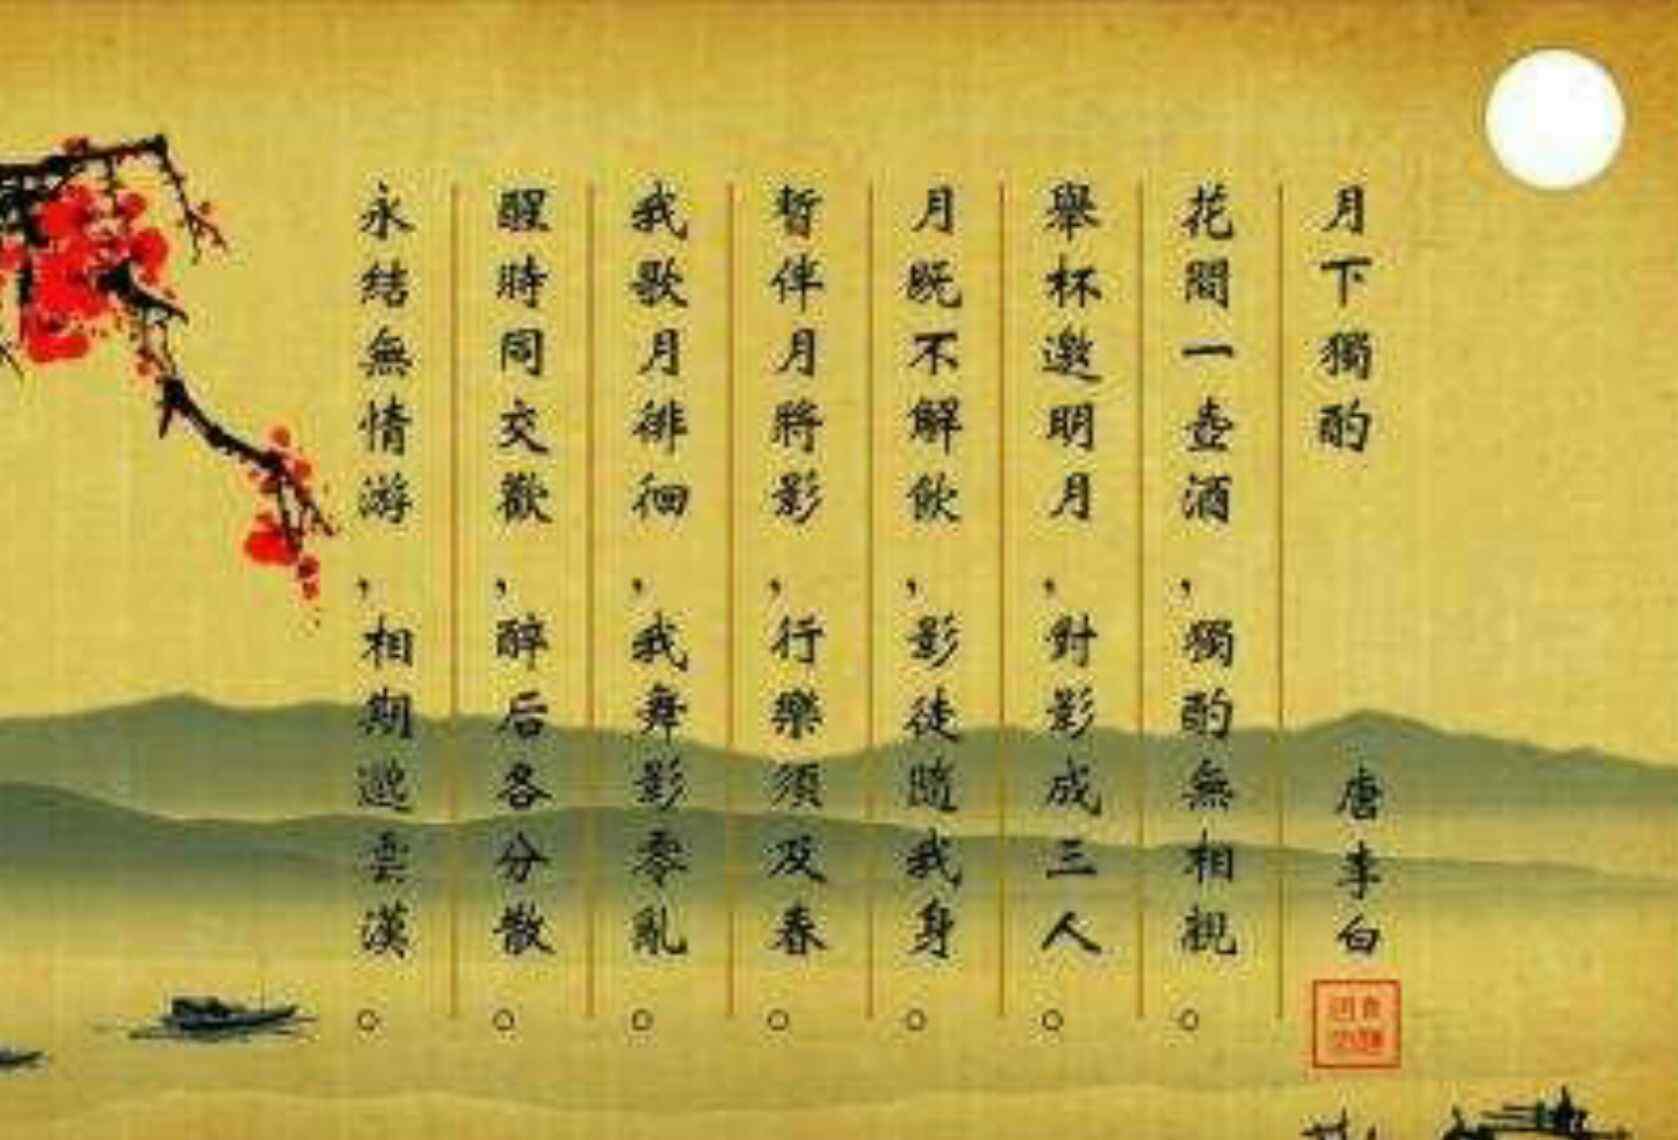 月下獨酌
唐李白
花間一壺酒，獨酌無相親。
舉杯邀明月，對影成三人。
月既不解飲，影徒隨我身。
暫伴月將影，行樂須及春。
我歌月徘徊，我舞影零亂。
醒時同交歡，醉后各分散。
永結無情游，相期邈雲漢。